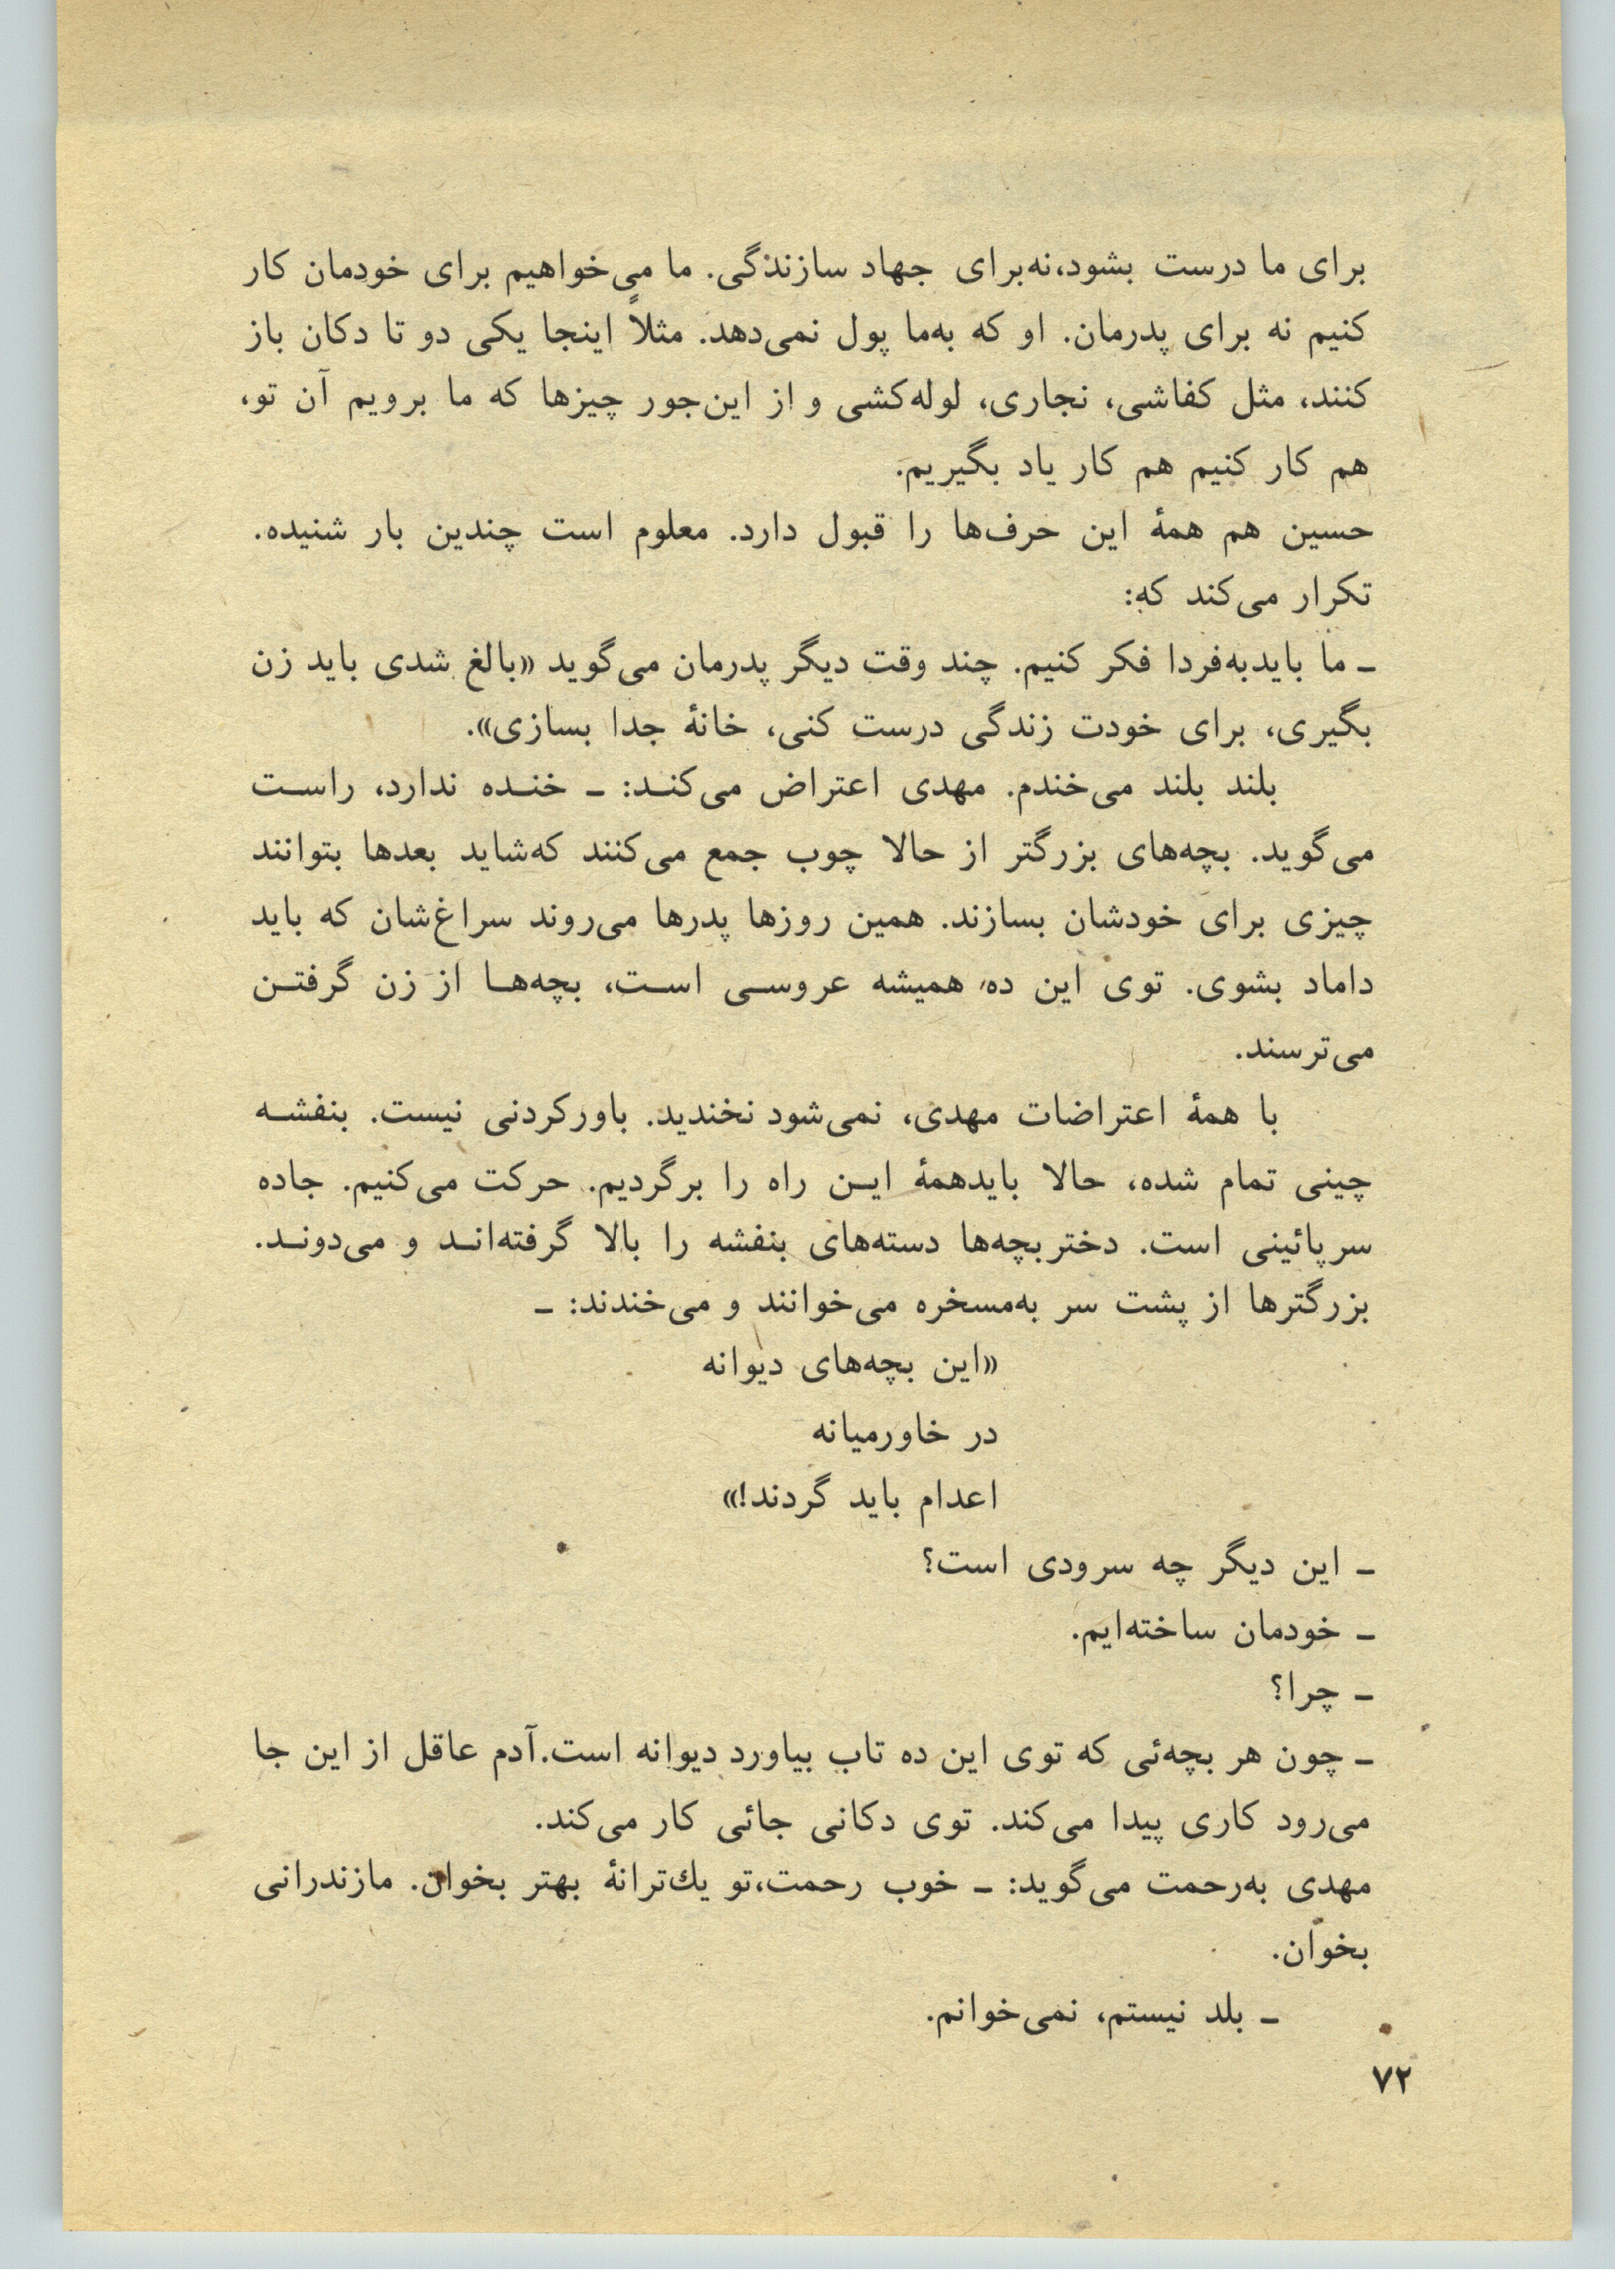 برای ما درست بشود،نه‌برای جهاد سازندگی. ما می‌خواهیم برای خودمان کار
کنیم نه برای پدرمان. او که به‌ما پول نمی‌دهد. مثلاً اینجا یکی دو تا دکان باز
کنند، مثل کفاشی، نجاری، لوله‌کشی و از این‌جور چیزها که ما برویم آن تو،
هم کار کنیم هم کار یاد بگیریم.
حسین هم همهٔ این حرف‌ها را قبول دارد. معلوم است چندین بار شنیده.
تکرار می‌کند که:
ـ ما بایدبه‌فردا فکر کنیم. چند وقت دیگر پدرمان می‌گوید «بالغ شدی باید زن
بگیری، برای خودت زندگی درست کنی، خانهٔ جدا بسازی».
بلند بلند می‌خندم. مهدی اعتراض می‌کنـد: ـ خنـده ندارد، راسـت
می‌گوید. بچه‌های بزرگتر از حالا چوب جمع می‌کنند که‌شاید بعدها بتوانند
چیزی برای خودشان بسازند. همین روزها پدرها می‌روند سراغ‌شان که باید
داماد بشوی. توی این ده، همیشه عروسـی اسـت، بچه‌هـا از زن گرفتـن
می‌ترسند.
با همهٔ اعتراضات مهدی، نمی‌شود نخندید. باورکردنی نیست. بنفشـه
چینی تمام شده، حالا بایدهمهٔ ایـن راه را برگردیم. حرکت می‌کنیم. جاده
سرپائینی است. دختربچه‌ها دسته‌های بنفشه را بالا گرفته‌انـد و می‌دونـد.
بزرگترها از پشت سر به‌مسخره می‌خوانند و می‌خندند: ـ
«این بچه‌های دیوانه
در خاورمیانه
اعدام باید گردند!»
ـ این دیگر چه سرودی است؟
ـ خودمان ساخته‌ایم.
ـ چرا؟
ـ چون هر بچه‌ئی که توی این ده تاب بیاورد دیوانه است.آدم عاقل از این جا
می‌رود کاری پیدا می‌کند. توی دکانی جائی کار می‌کند.
مهدی به‌رحمت می‌گوید: ـ خوب رحمت،تو یك‌ترانهٔ بهتر بخوان. مازندرانی
بخوان.
ـ بلد نیستم، نمی‌خوانم.
۷۲